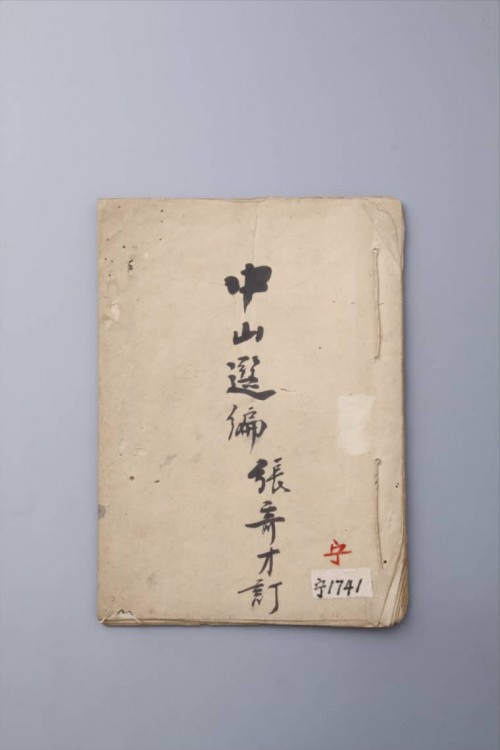 中山選編
張奇才訂
宁
宁1741